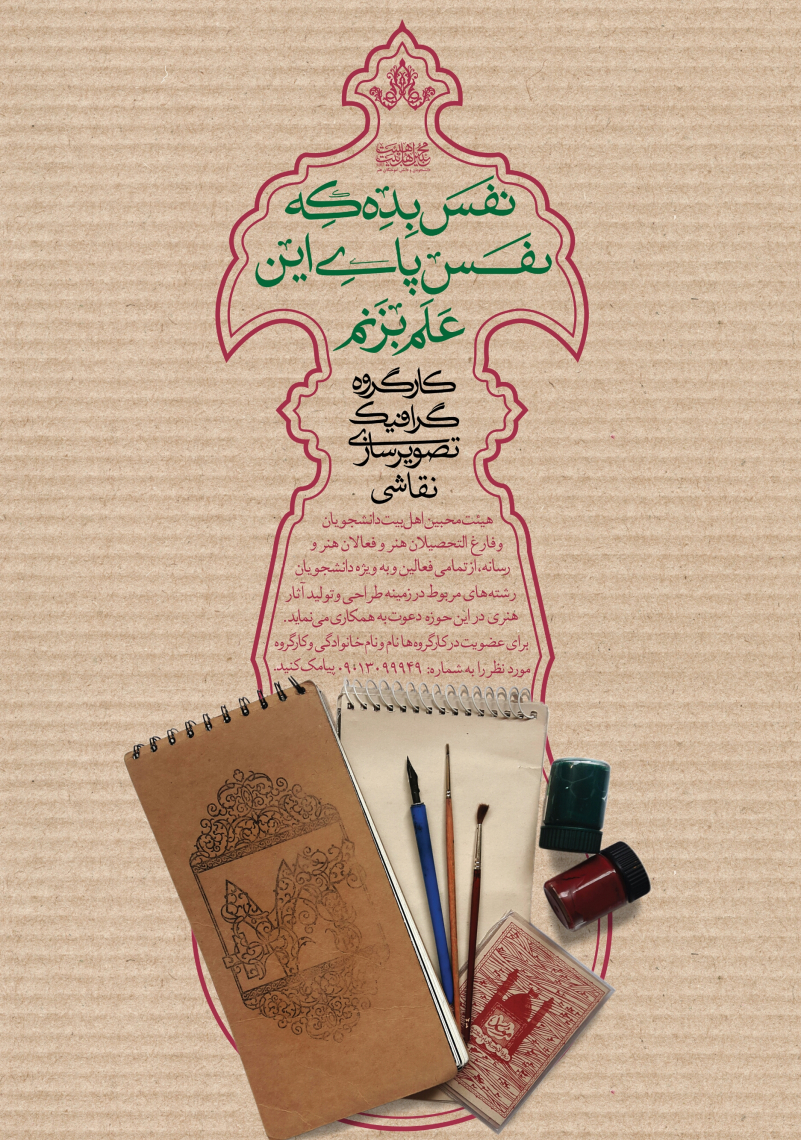 محبین اهل بیت
نفَس بِدِه کِه
نفَــس پاےِ این
عَلَم بزَنم
کارگروه
گرافیک
تصویرسازی
نقاشی
هیئت محبین اهل بیت دانشجویان
و فارغ التحصیلان هنر و فعالان هنر و
رسانه، از تمامی فعالین و به ویژه دانشجویان
رشته‌های مربوط در زمینه طراحی و تولید آثار
هنری در این حوزه دعوت به همکاری می‌نماید.
برای عضویت در کارگروه‌ها نام و نام خانوادگی و کارگروه
مورد نظر را به شماره: ۰۹۰۱۳۰۹۹۹۴۹ پیامک کنید.